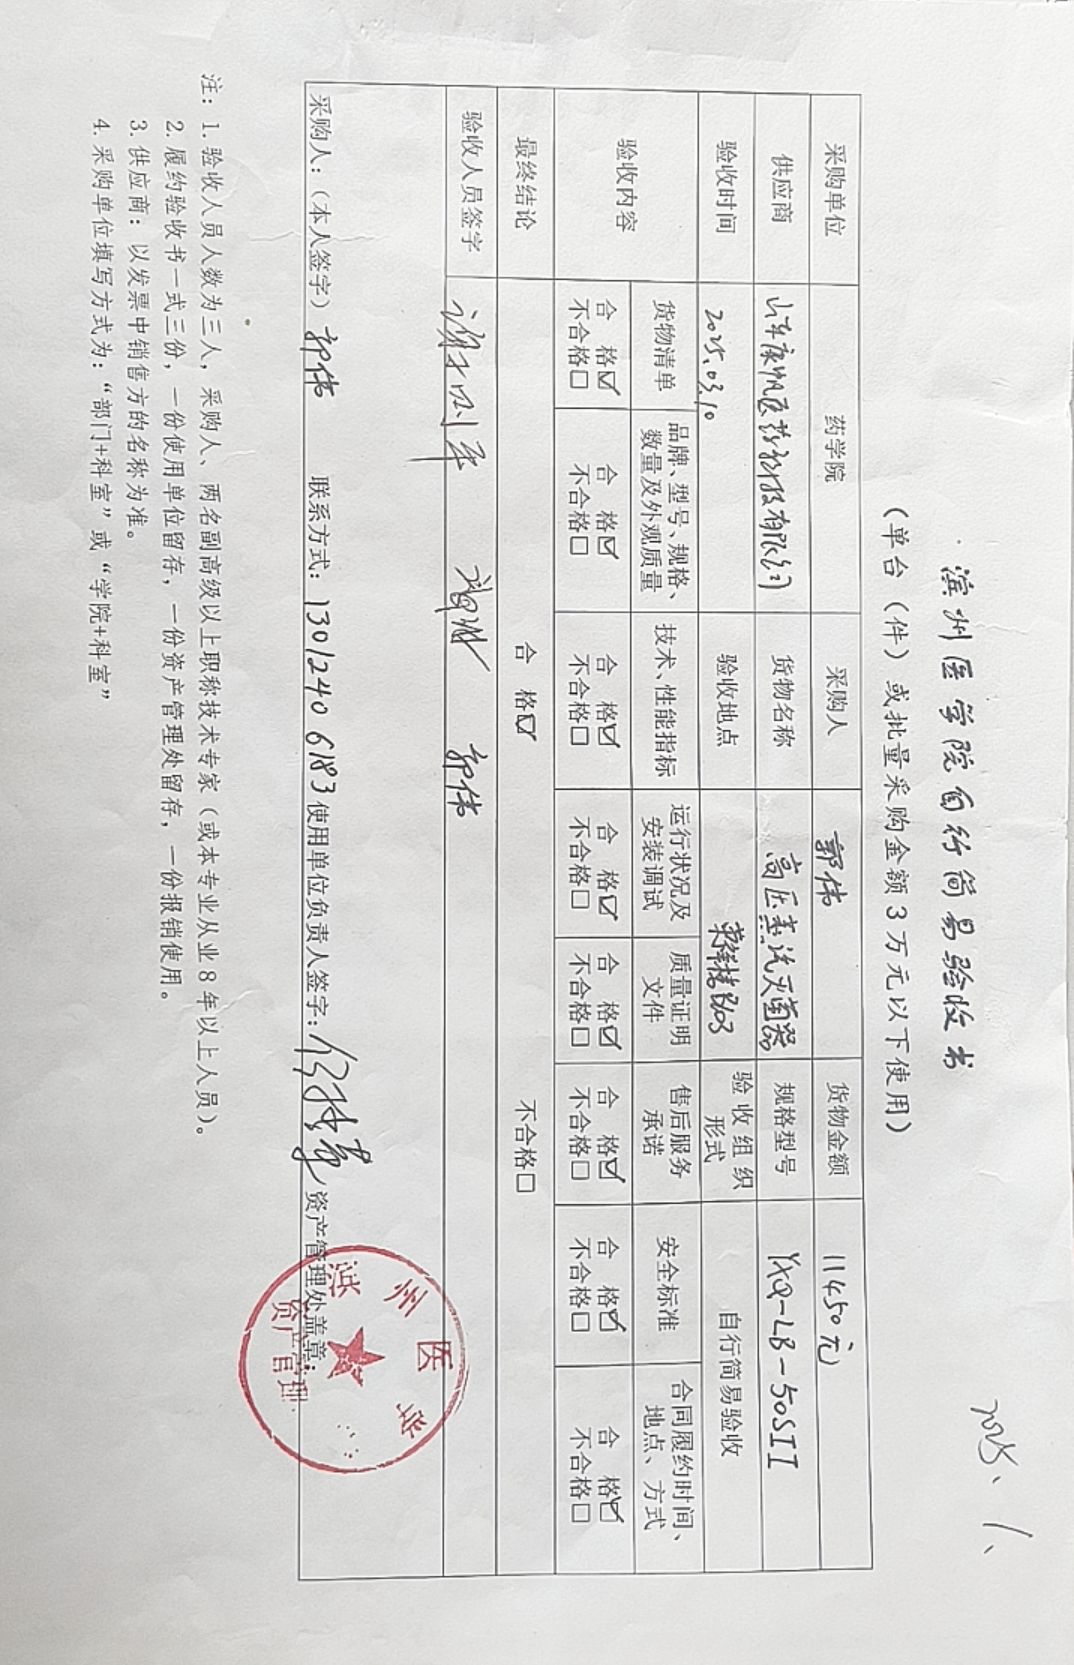 2025、1、
滨州医学院自行简易验收书
（单台（件）或批量采购金额3万元以下使用）
采购单位 药学院 采购人 郭伟 货物金额 11450元
供应商 山东康帆医药科技有限公司 货物名称 高压蒸汽灭菌器 规格型号 YXQ-LB-50SII
验收时间 2025.03.10 验收地点 B103 验收组织形式 自行简易验收
验收内容
货物清单 品牌、型号、规格、数量及外观质量 技术、性能指标 运行状况及安装调试 质量证明文件 售后服务承诺 安全标准 合同履约时间、地点、方式
合 格☑ 合 格☑ 合 格☑ 合 格☑ 合 格☑ 合 格☑ 合 格☑ 合 格☑
不合格□ 不合格□ 不合格□ 不合格□ 不合格□ 不合格□ 不合格□ 不合格□
最终结论 合 格☑ 不合格□
验收人员签字 郭伟
采购人：（本人签字） 郭伟 联系方式：13012406183 使用单位负责人签字： 资产管理处盖章：
滨州医学
资产管理
注：1. 验收人员人数为三人，采购人、两名副高级以上职称技术专家（或本专业从业8年以上人员）。
2. 履约验收书一式三份，一份使用单位留存，一份资产管理处留存，一份报销使用。
3. 供应商：以发票中销售方的名称为准。
4. 采购单位填写方式为：“部门+科室”或“学院+科室”